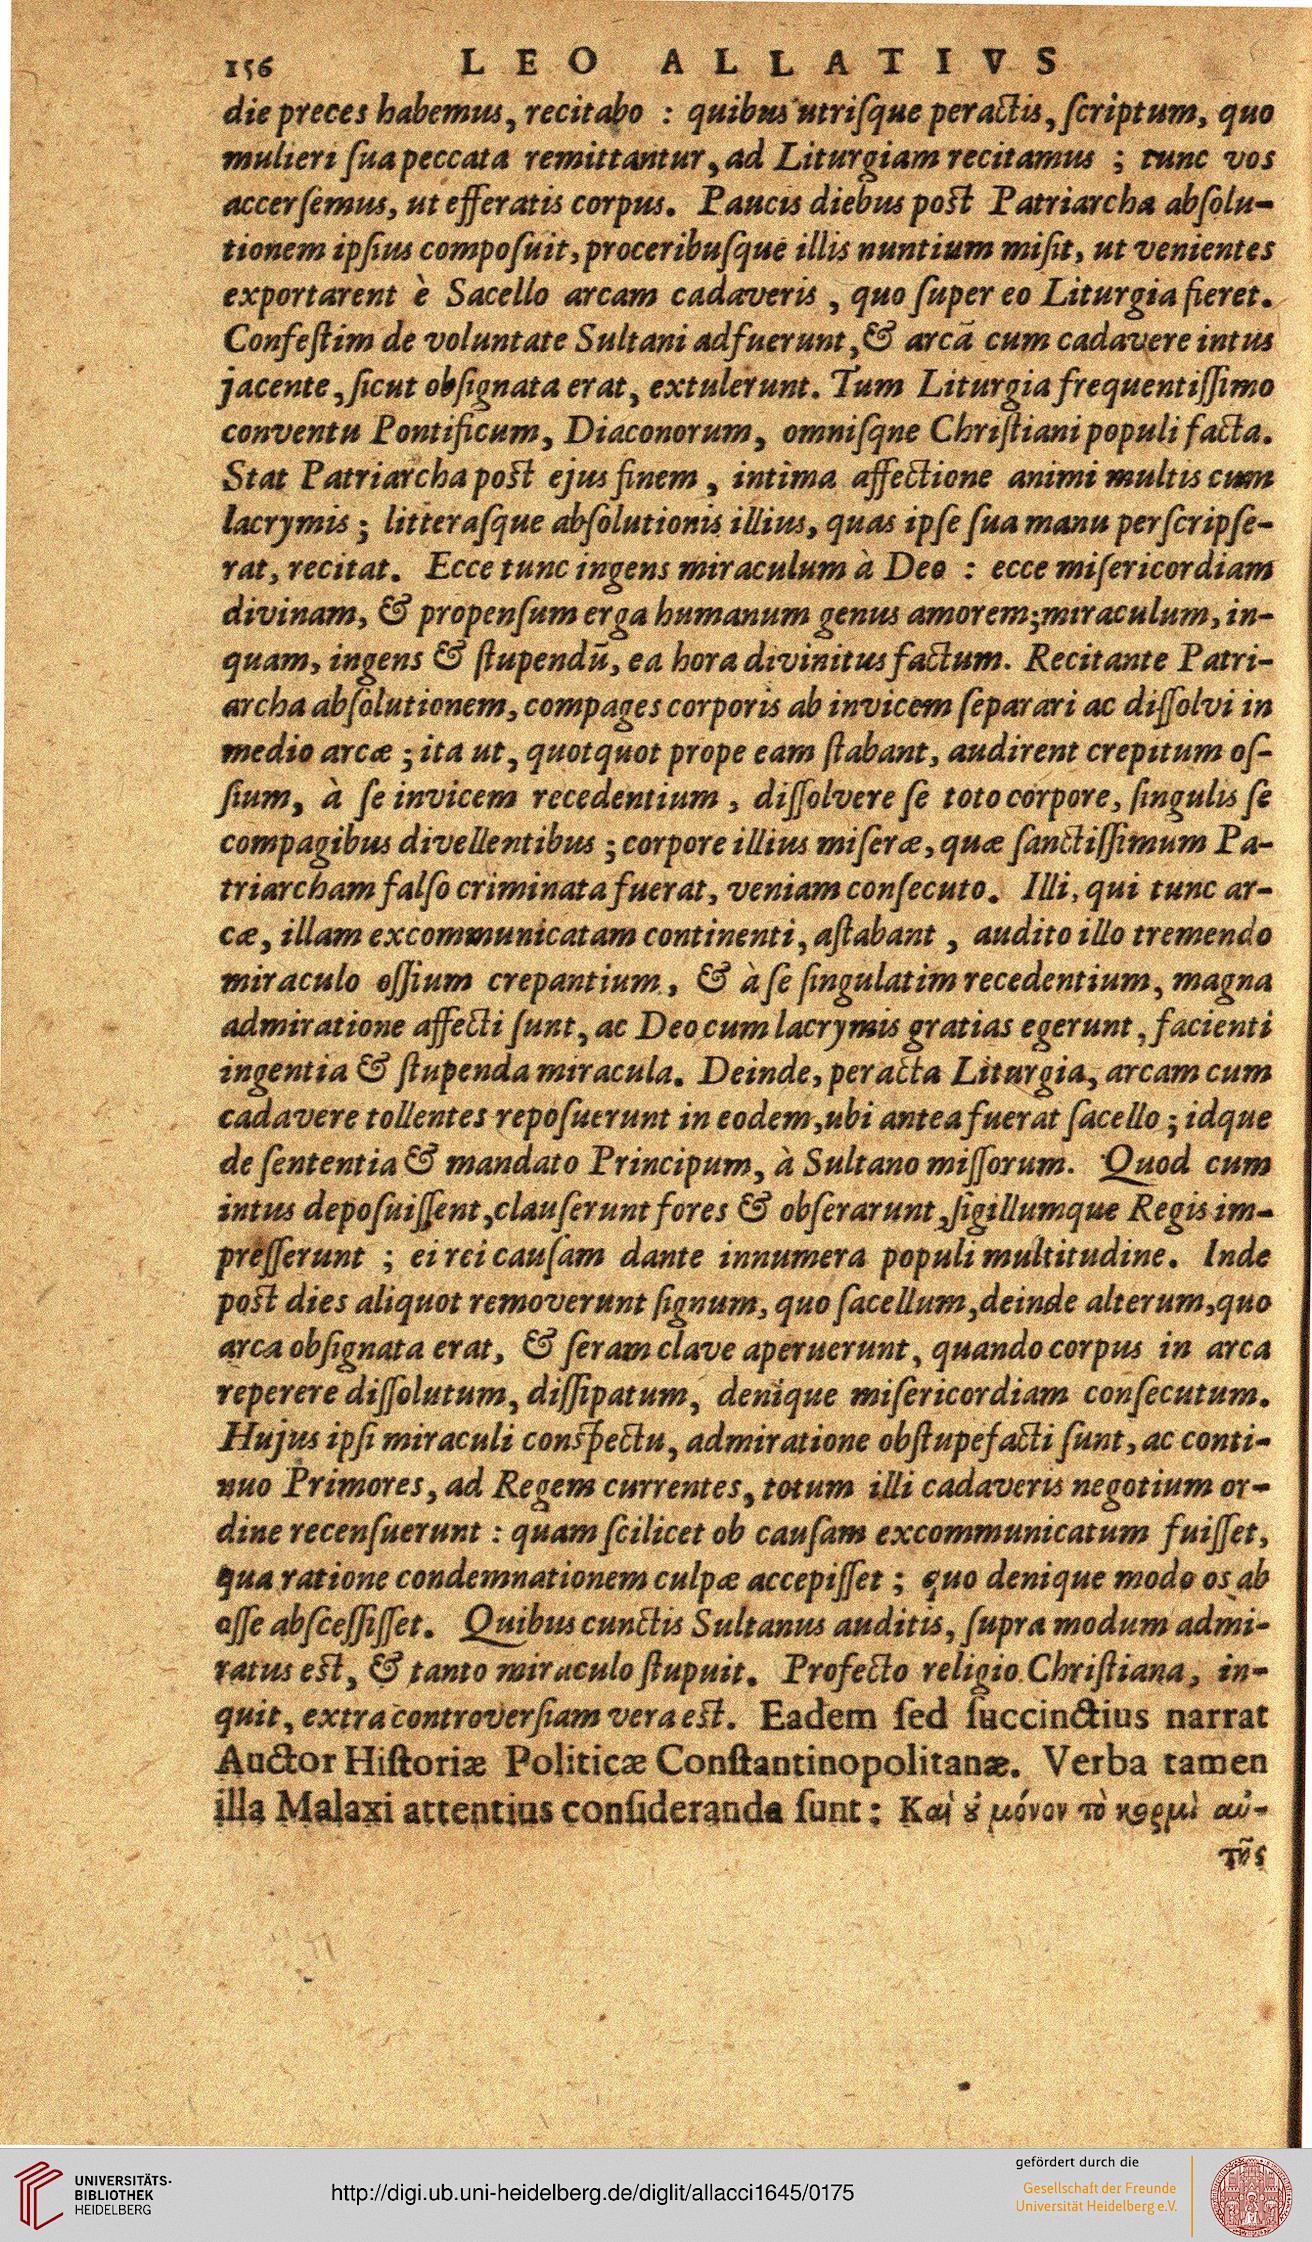 156 LEO ALLATIVS
die preces habemus, recitabo : quibus utriſque peractis, ſcriptum, quo
mulieri ſua peccata remittantur, ad Liturgiam recitamus ; tunc vos
accerſemus, ut efferatis corpus. Paucis diebus poſt Patriarcha abſolu-
tionem ipſius compoſuit, proceribuſque illis nuntium miſit, ut venientes
exportarent è Sacello arcam cadaveris , quo ſuper eo Liturgia fieret.
Confeſtim de voluntate Sultani adfuerunt, & arcā cum cadavere intus
jacente, ſicut obſignata erat, extulerunt. Tum Liturgia frequentiſſimo
conventu Pontificum, Diaconorum, omniſqne Chriſtiani populi facta.
Stat Patriarcha poſt ejus finem , intima affectione animi multis cum
lacrymis ; litteraſque abſolutionis illius, quas ipſe ſua manu perſcripſe-
rat, recitat. Ecce tunc ingens miraculum à Deo : ecce miſericordiam
divinam, & propenſum erga humanum genus amorem; miraculum, in-
quam, ingens & ſtupendū, ea hora divinitus factum. Recitante Patri-
archa abſolutionem, compages corporis ab invicem ſeparari ac diſſolvi in
medio arcæ ; ita ut, quotquot prope eam ſtabant, audirent crepitum oſ-
ſium, à ſe invicem recedentium , diſſolvere ſe toto corpore, ſingulis ſe
compagibus divellentibus ; corpore illius miſeræ, quæ ſanctiſſimum Pa-
triarcham falſo criminata fuerat, veniam conſecuto. Illi, qui tunc ar-
cæ, illam excommunicatam continenti, aſtabant , audito illo tremendo
miraculo oſſium crepantium, & à ſe ſingulatim recedentium, magna
admiratione affecti ſunt, ac Deo cum lacrymis gratias egerunt, facienti
ingentia & ſtupenda miracula. Deinde, peracta Liturgia, arcam cum
cadavere tollentes repoſuerunt in eodem, ubi antea fuerat ſacello ; idque
de ſententia & mandato Principum, à Sultano miſſorum. Quod cum
intus depoſuiſſent, clauſerunt fores & obſerarunt, ſigillumque Regis im-
preſſerunt ; ei rei cauſam dante innumera populi multitudine. Inde
poſt dies aliquot removerunt ſignum, quo ſacellum, deinde alterum, quo
arca obſignata erat, & ſeram clave aperuerunt, quando corpus in arca
reperere diſſolutum, diſſipatum, denique miſericordiam conſecutum.
Hujus ipſi miraculi conſpectu, admiratione obſtupefacti ſunt, ac conti-
nuo Primores, ad Regem currentes, totum illi cadaveris negotium or-
dine recenſuerunt : quam ſcilicet ob cauſam excommunicatum fuiſſet,
qua ratione condemnationem culpæ accepiſſet ; quo denique modo os ab
oſſe abſceſſiſſet. Quibus cunctis Sultanus auditis, ſupra modum admi-
ratus eſt, & tanto miraculo ſtupuit. Profecto religio Chriſtiana, in-
quit, extra controverſiam vera eſt. Eadem ſed ſuccinctius narrat
Auctor Hiſtoriæ Politicæ Conſtantinopolitanæ. Verba tamen
illa Malaxi attentius conſideranda ſunt : Καὶ ȣ̓ μόνον τὸ κορμὶ αὐ-
τῆς
UNIVERSITÄTS-
BIBLIOTHEK
HEIDELBERG
http://digi.ub.uni-heidelberg.de/diglit/allacci1645/0175
gefördert durch die
Gesellschaft der Freunde
Universität Heidelberg e.V.